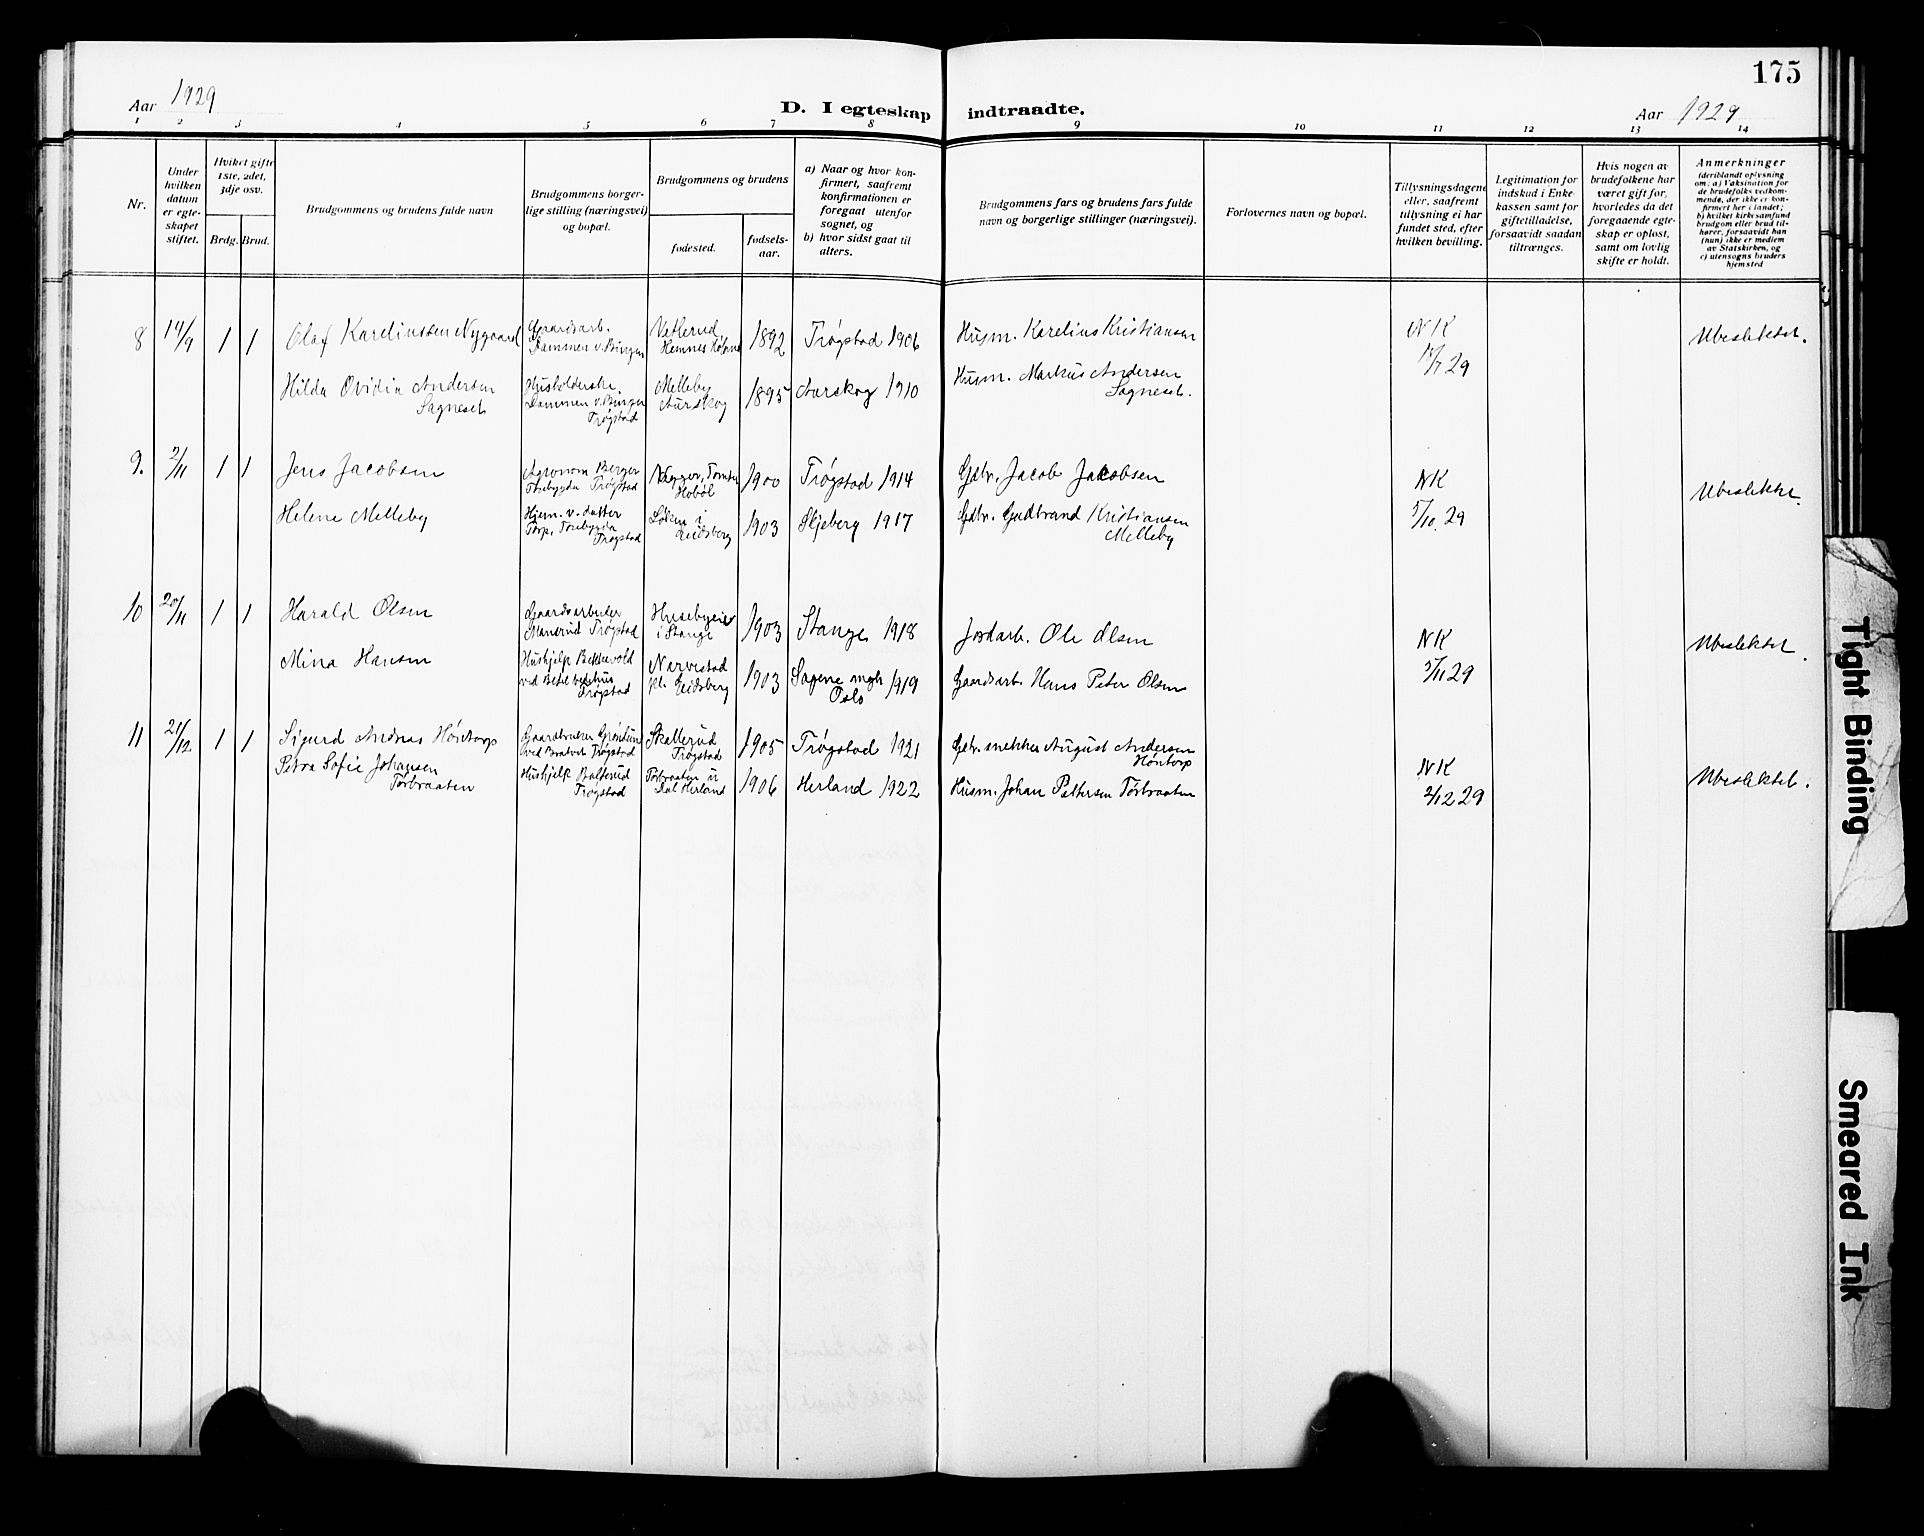 175
Aar 1929
D. I egteskap indtraadte.
Aar 1929
1 2 3 4 5 6 7 8 9 10 11 12 13 14
Nr.
Under
hvilken
datum
er egte-
skapet
stiftet.
Hvilket gifte
1ste, 2det,
3dje osv.
Brdg. Brud.
Brudgommens og brudens fulde navn
Brudgommens borger-
lige stilling (næringsvei)
og bopæl.
Brudgommens og brudens
fødested.
fødsels-
aar.
a) Naar og hvor kon-
firmert, saafremt
konfirmationen er
foregaat utenfor
sognet, og
b) hvor sidst gaat til
alters.
Brudgommens fars og brudens fars fulde
navn og borgerlige stillinger (næringsvei).
Forlovernes navn og bopæl.
Tillysningsdagene
eller, saafremt
tillysning ei har
fundet sted, efter
hvilken bevilling.
Legitimation for
indskud i Enke-
kassen samt for
giftetilladelse,
forsaavidt saadan
tiltrænges.
Hvis nogen av
brudefolkene har
været gift før,
hvorledes da det
foregaaende egte-
skap er opløst,
samt om lovlig
skifte er holdt.
Anmerkninger
(deriblandt oplysning
om: a) Vaksination for
de brudefolks vedkom-
mende, der ikke er kon-
firmert her i landet;
b) hvilket kirkesamfund
brudgom eller brud til-
hører, forsaavidt han
(hun) ikke er medlem
av Statskirken, og
c) utensogns bruders
hjemsted
8 14/9 1 1
Olaf Karelinssen Nygaard
Gaardsarb.
Dammen v. Bingen
Vetlerud
Hemnes Høland
1892
Trøgstad 1906
Husm. Karelius Kristiansen
NK
29
Ubeslektet.
Hilda Ovidia Andersen
Sagneset
Husholderske.
Dammen v. Bingen
Trøgstad
Melleby
Aurskog
1895
Aurskog 1910
Husm. Markus Andersen
Sagneset.
9. 2/11 1 1
Jens Jacobsen
Agronom Berger
Trøgstad
Hobøl
1900
Trøgstad 1914
Gdbr. Jacob Jakobsen
NK
5/10. 29
Ubeslektet.
Helene Melleby
Hjem. v. datter
Torp, Torebygda
Trøgstad
Løken i
Eidsberg
1903
Skjeberg 1917
Gdbr. Gudbrand Kristiansen
Melleby
10 20/11 1 1
Harald Olsen
Gaardsarbeider
Mansrud Trøgstad
Husebyeie
i Stange
1903
Stange 1918
Jordarb. Ole Olsen
NK
5/11 29
Ubeslektet.
Mina Hansen
Hushjelp Bekkevold
ved Betel bedehus
Trøgstad
Narvestad
pl. Eidsberg
1903
Sagene mgh 1919
Oslo
Gaardsarb. Hans Peter Olsen
11 21/12. 1 1
Sigurd Andreas Høntorp
Gaardbruker Grønlund
ved Båstad Trøgstad
Skallerud
Trøgstad
1905
Trøgstad 1921
Gdbr. snekker August Andersen
Høntorp
NK
2/12 29
Ubeslektet.
Petra Sofie Johansen
Torbraaten
Hushjelp Balterud
Trøgstad
Torbraaten u
Dal Herland
1906
Herland 1922
Husm. Johan Pettersen Torbraaten
Tight Binding
Smeared Ink